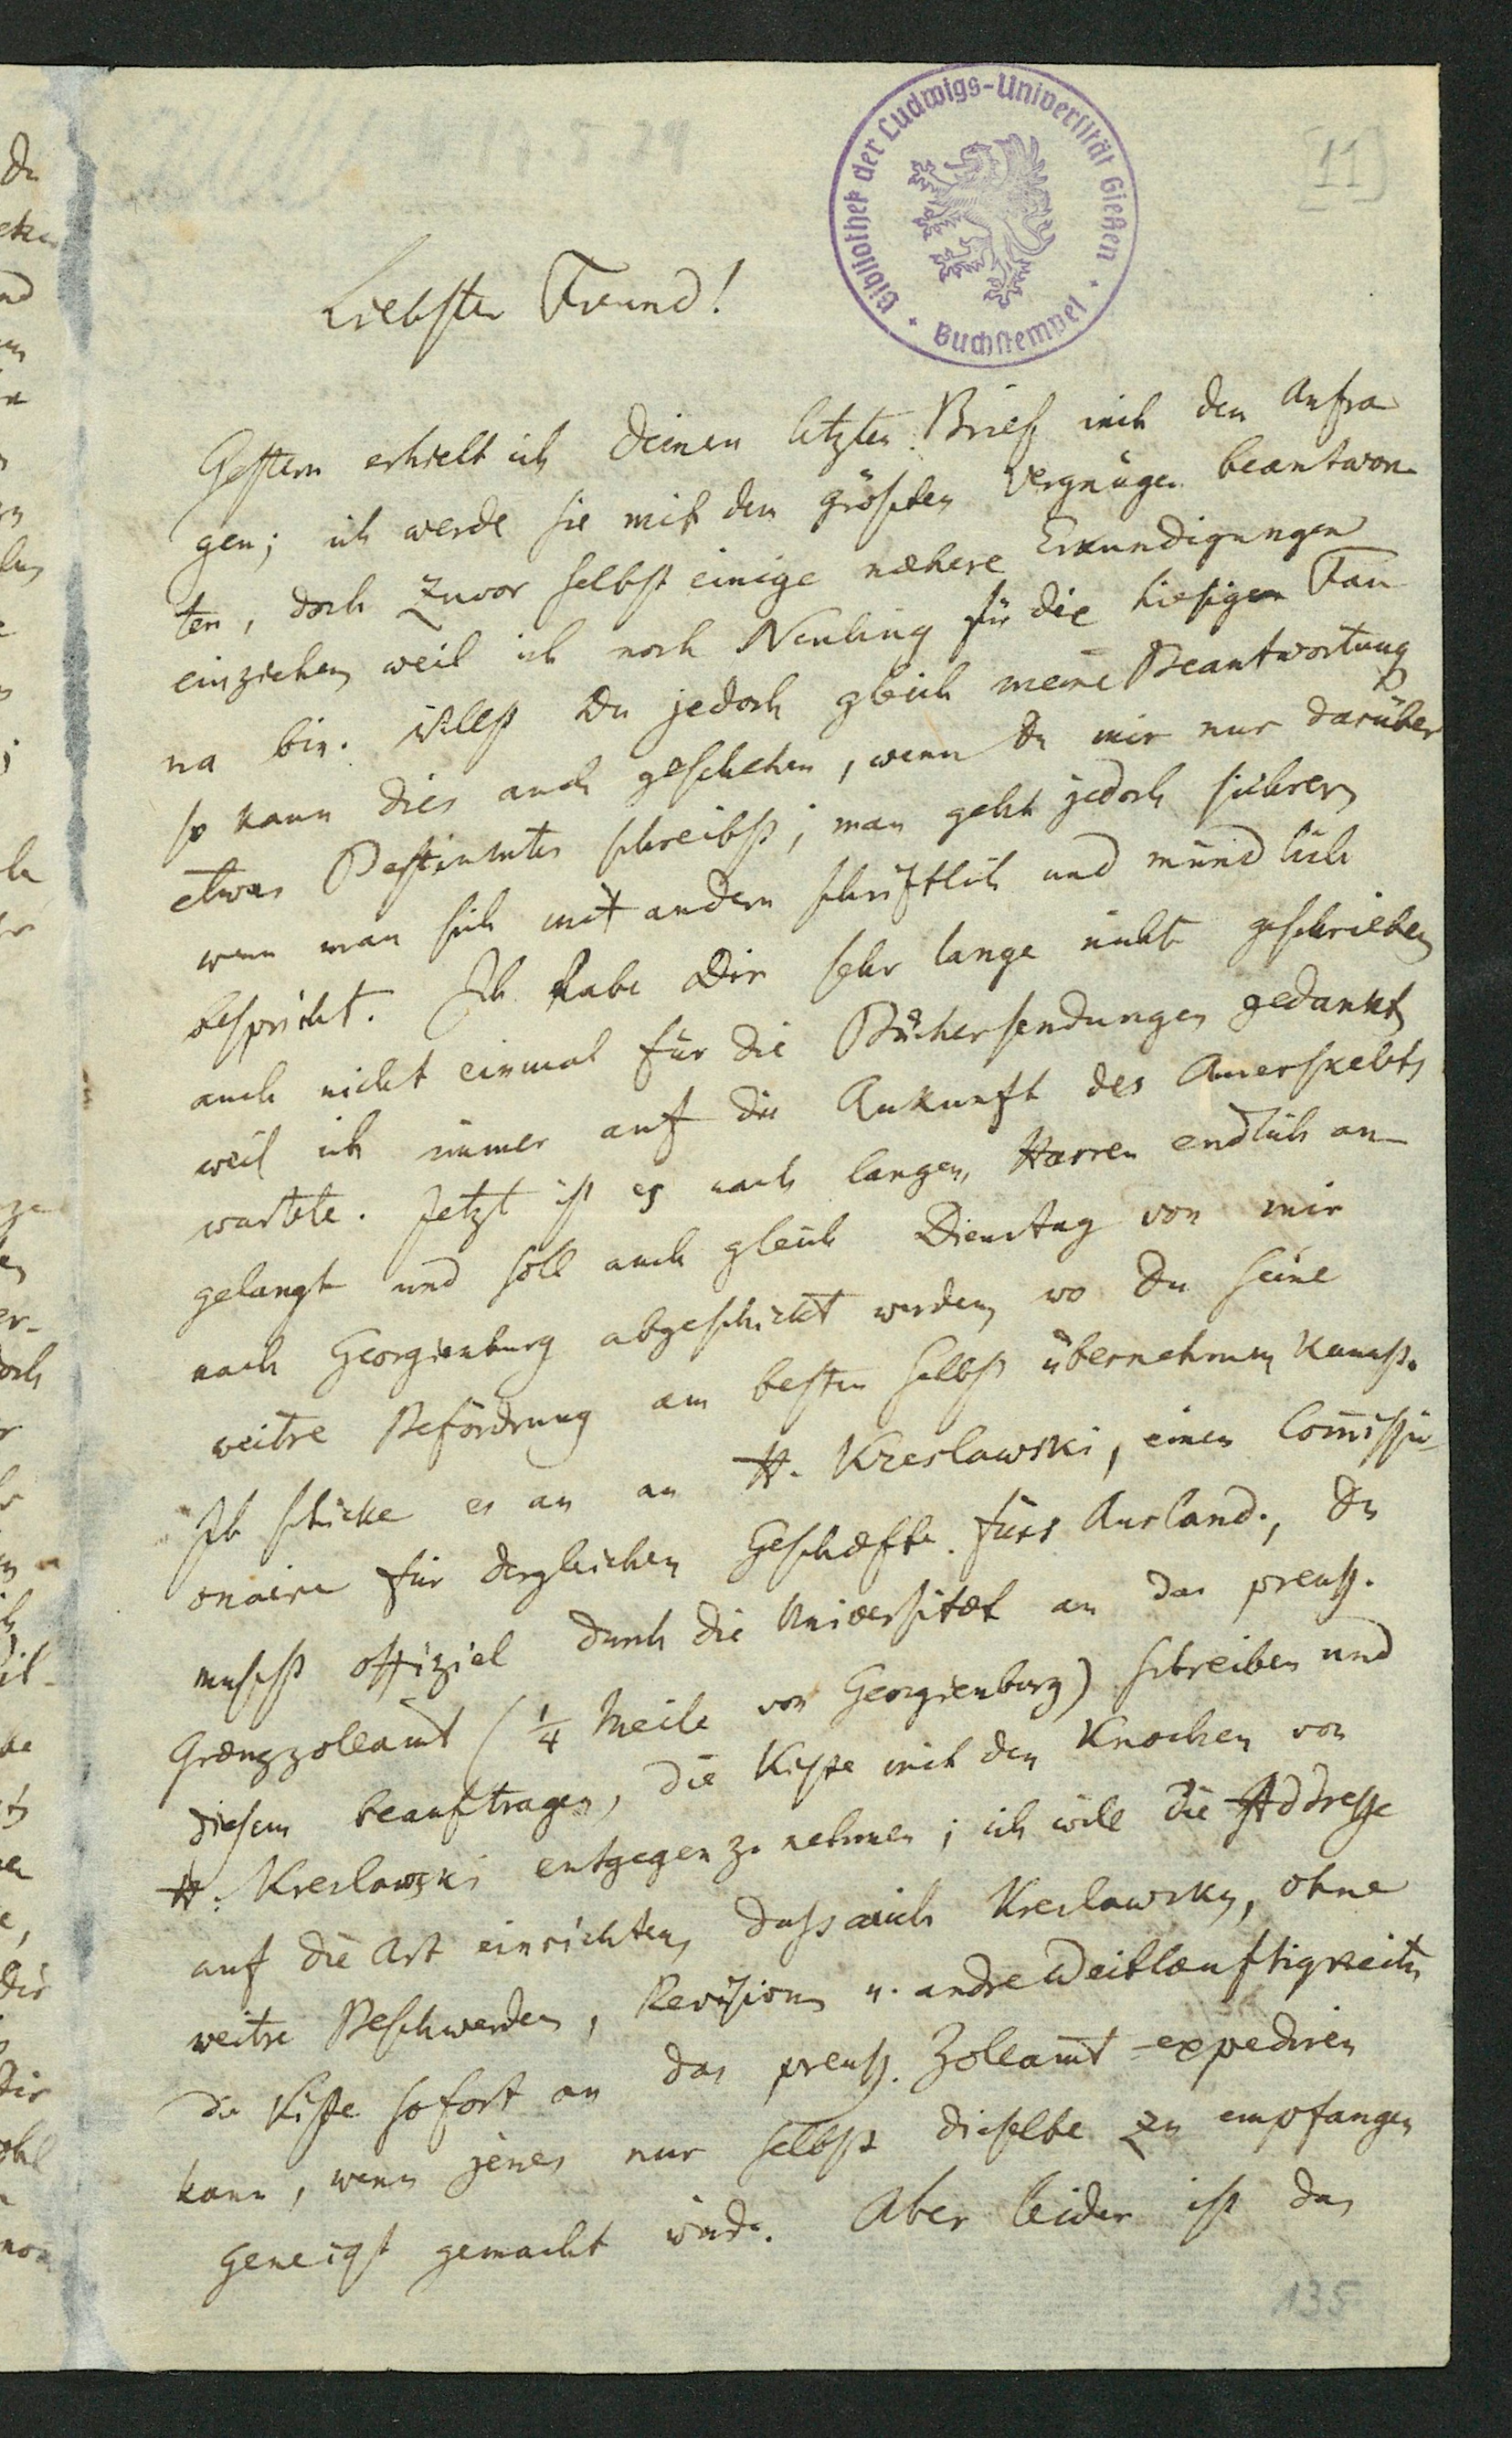 [11]
Bibliothek der Ludwigs-Universität Gießen · Buchstempel ·
Liebster Freund!
Gestern erhielt ich Deinen letzten Brief mit den Anfra
gen; ich werde sie mit dem größten Vergnügen beantwor-
ten, doch zuvor selbst einige nähere Erkundigungen
einziehen, weil ich noch Neuling für die hiesigen Fau
na bin. Willst Du jedoch gleich meine Beantwortung
so kann dies auch geschehen, wenn Du mir nur darüber
etwas Bestimmtes schreibst; man geht jedoch sichrer,
wenn man sich mit andern schriftlich und mündlich
bespricht. Ich habe Dir sehr lange nicht geschrieben
auch nicht einmal für die Büchersendungen gedankt,
weil ich immer auf die Ankunft des Auerskelets
wartete. Jetzt ist es nach langen Harren endlich an-
gelangt und soll auch gleich Dienstag von mir
nach Georgienburg abgeschickt werden, wo Du seine
weitre Befördrung am besten selbst übernehmen kannst.
Ich schicke es an an H. Kreslawski, einen Commissi-
onaire für dergleichen Geschæfte fürs Ausland, Du
musst offiziel durch die Universitæt an das preuss.
Grænzzollamt (1/4 Meile von Georgienburg) schreiben und
diesem beauftragen, die Kiste mit den Knochen von
H. Kreslawski entgegen zu nehmen; ich will die Addresse
auf die Art einrichten, dass auch Kreslawsky, ohne
weitre Beschwerden, Revision u. andre Weitlæuftigkeiten
die Kiste sofort an das preuss. Zollamt expediren
kann, wenn jenes nur selbst dieselbe zu empfangen
geneigt gemacht wird. Aber leider ist das
135